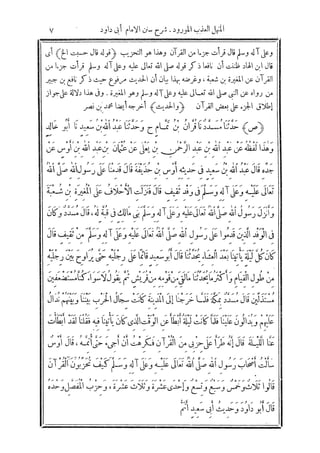 المنهل العذب المورود ـ شرح سنن الامام أبى داود ٧
وعلى آله وسلم قال قرأت جزءا من القرآن وهذا هو التحزيب (قوله قال حسبت الخ) أى
قال ابن الهاد ظننت أن نافعا ذكر قوله صلى الله تعالى عليه وعلى آله وسلم قرأت جزءا من
القرآن عن المغيرة بن شعبة ، وغرضه بهذا بيان أن الحديث مرفوع حيث ذكر نافع بن جبير
من رواه عن النبى صلى الله تعالى عليه وعلى آله وسلم وهو المغيرة . وفى هذا دلالة على جواز
إطلاق الجزء على بعض القرآن (والحديث) أخرجه أيضا محمد بن نصر
(ص) حَدَّثَنَا مُسَدَّدٌ نَا قُرَّانُ بْنُ تَمَّامٍ ح وَحَدَّثَنَا عَبْدُ اللهِ بْنُ سَعِيدٍ نَا أَبُو خَالِدٍ
وَهَذَا لَفْظُهُ عَنْ عَبْدِ اللهِ بْنِ عَبْدِ الرَّحْمَنِ بْنِ يَعْلَى عَنْ عُثْمَانَ بْنِ عَبْدِ اللهِ بْنِ أَوْسٍ عَنْ
جَدِّهِ قَالَ عَبْدُ اللهِ بْنُ سَعِيدٍ فِى حَدِيثِ أَوْسِ بْنِ حُذَيْفَةَ قَالَ قَدِمْنَا عَلَى رَسُولِ اللهِ صَلَّى اللهُ
تَعَالَى عَلَيْهِ وَعَلَى آلِهِ وَسَلَّمَ فِى وَفْدِ ثَقِيفٍ قَالَ فَنَزَلَتِ الْأَحْلَافُ عَلَى الْمُغِيرَةِ بْنِ شُعْبَةَ
وَأَنْزَلَ رَسُولُ اللهِ صَلَّى اللهُ تَعَالَى عَلَيْهِ وَعَلَى آلِهِ وَسَلَّمَ بَنِى مَالِكٍ فِى قُبَّةٍ لَهُ، قَالَ مُسَدَّدٌ وَكَانَ
فِى الْوَفْدِ الَّذِينَ قَدِمُوا عَلَى رَسُولِ اللهِ صَلَّى اللهُ تَعَالَى عَلَيْهِ وَعَلَى آلِهِ وَسَلَّمَ مِنْ ثَقِيفٍ قَالَ
كَانَ كُلَّ لَيْلَةٍ يَأْتِينَا بَعْدَ الْعِشَاءِ يُحَدِّثُنَا قَالَ أَبُو سَعِيدٍ قَائِمًا عَلَى رِجْلَيْهِ حَتَّى يُرَاوِحَ بَيْنَ رِجْلَيْهِ
مِنْ طُولِ الْقِيَامِ وَأَكْثَرُ مَا يُحَدِّثُنَا مَا لَقِىَ مِنْ قَوْمِهِ مِنْ قُرَيْشٍ ثُمَّ يَقُولُ لَا سَوَاءَ، كُنَّا مُسْتَضْعَفِينَ
مُسْتَذَلِّينَ قَالَ مُسَدَّدٌ بِمَكَّةَ فَلَمَّا خَرَجْنَا إِلَى الْمَدِينَةِ كَانَتْ سِجَالُ الْحَرْبِ بَيْنَنَا وَبَيْنَهُمْ نُدَالُ
عَلَيْهِمْ وَيُدَالُونَ عَلَيْنَا فَلَمَّا كَانَتْ لَيْلَةٌ أَبْطَأَ عَنِ الْوَقْتِ الَّذِى كَانَ يَأْتِينَا فِيهِ فَقُلْنَا لَقَدْ أَبْطَأْتَ
عَنَّا اللَّيْلَةَ قَالَ إِنَّهُ طَرَأَ عَلَىَّ حِزْبِى مِنَ الْقُرْآنِ فَكَرِهْتُ أَنْ أَجِىءَ حَتَّى أُتِمَّهُ، قَالَ أَوْسٌ
سَأَلْتُ أَصْحَابَ رَسُولِ اللهِ صَلَّى اللهُ تَعَالَى عَلَيْهِ وَعَلَى آلِهِ وَسَلَّمَ كَيْفَ تُحَزِّبُونَ الْقُرْآنَ
قَالُوا ثَلَاثٌ وَخَمْسٌ وَسَبْعٌ وَتِسْعٌ وَإِحْدَى عَشْرَةَ وَثَلَاثَ عَشْرَةَ، وَحِزْبُ الْمُفَصَّلِ وَحْدَهُ
قَالَ أَبُو دَاوُدَ وَحَدِيثُ أَبِى سَعِيدٍ أَتَمُّ